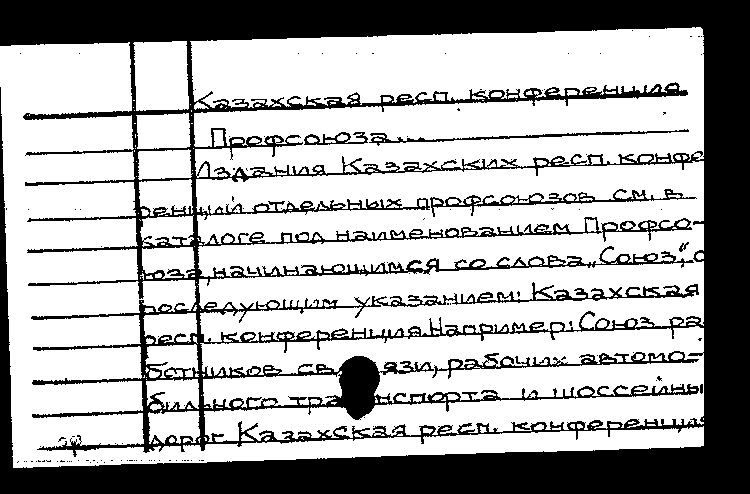 Казахская респ. конференция
Профсоюза...
Издания Казахских респ. конфе
ренций отдельных профсоюзов см. в
каталоге под наименованием Профсо-
юза, начинающимся со слова „Союз“, с
последующим указанием: Казахская
респ. конференция. Например: Союз ра
ботников связи, рабочих автомо-
бильного транспорта и шоссейны
дорог Казахская респ. конференция